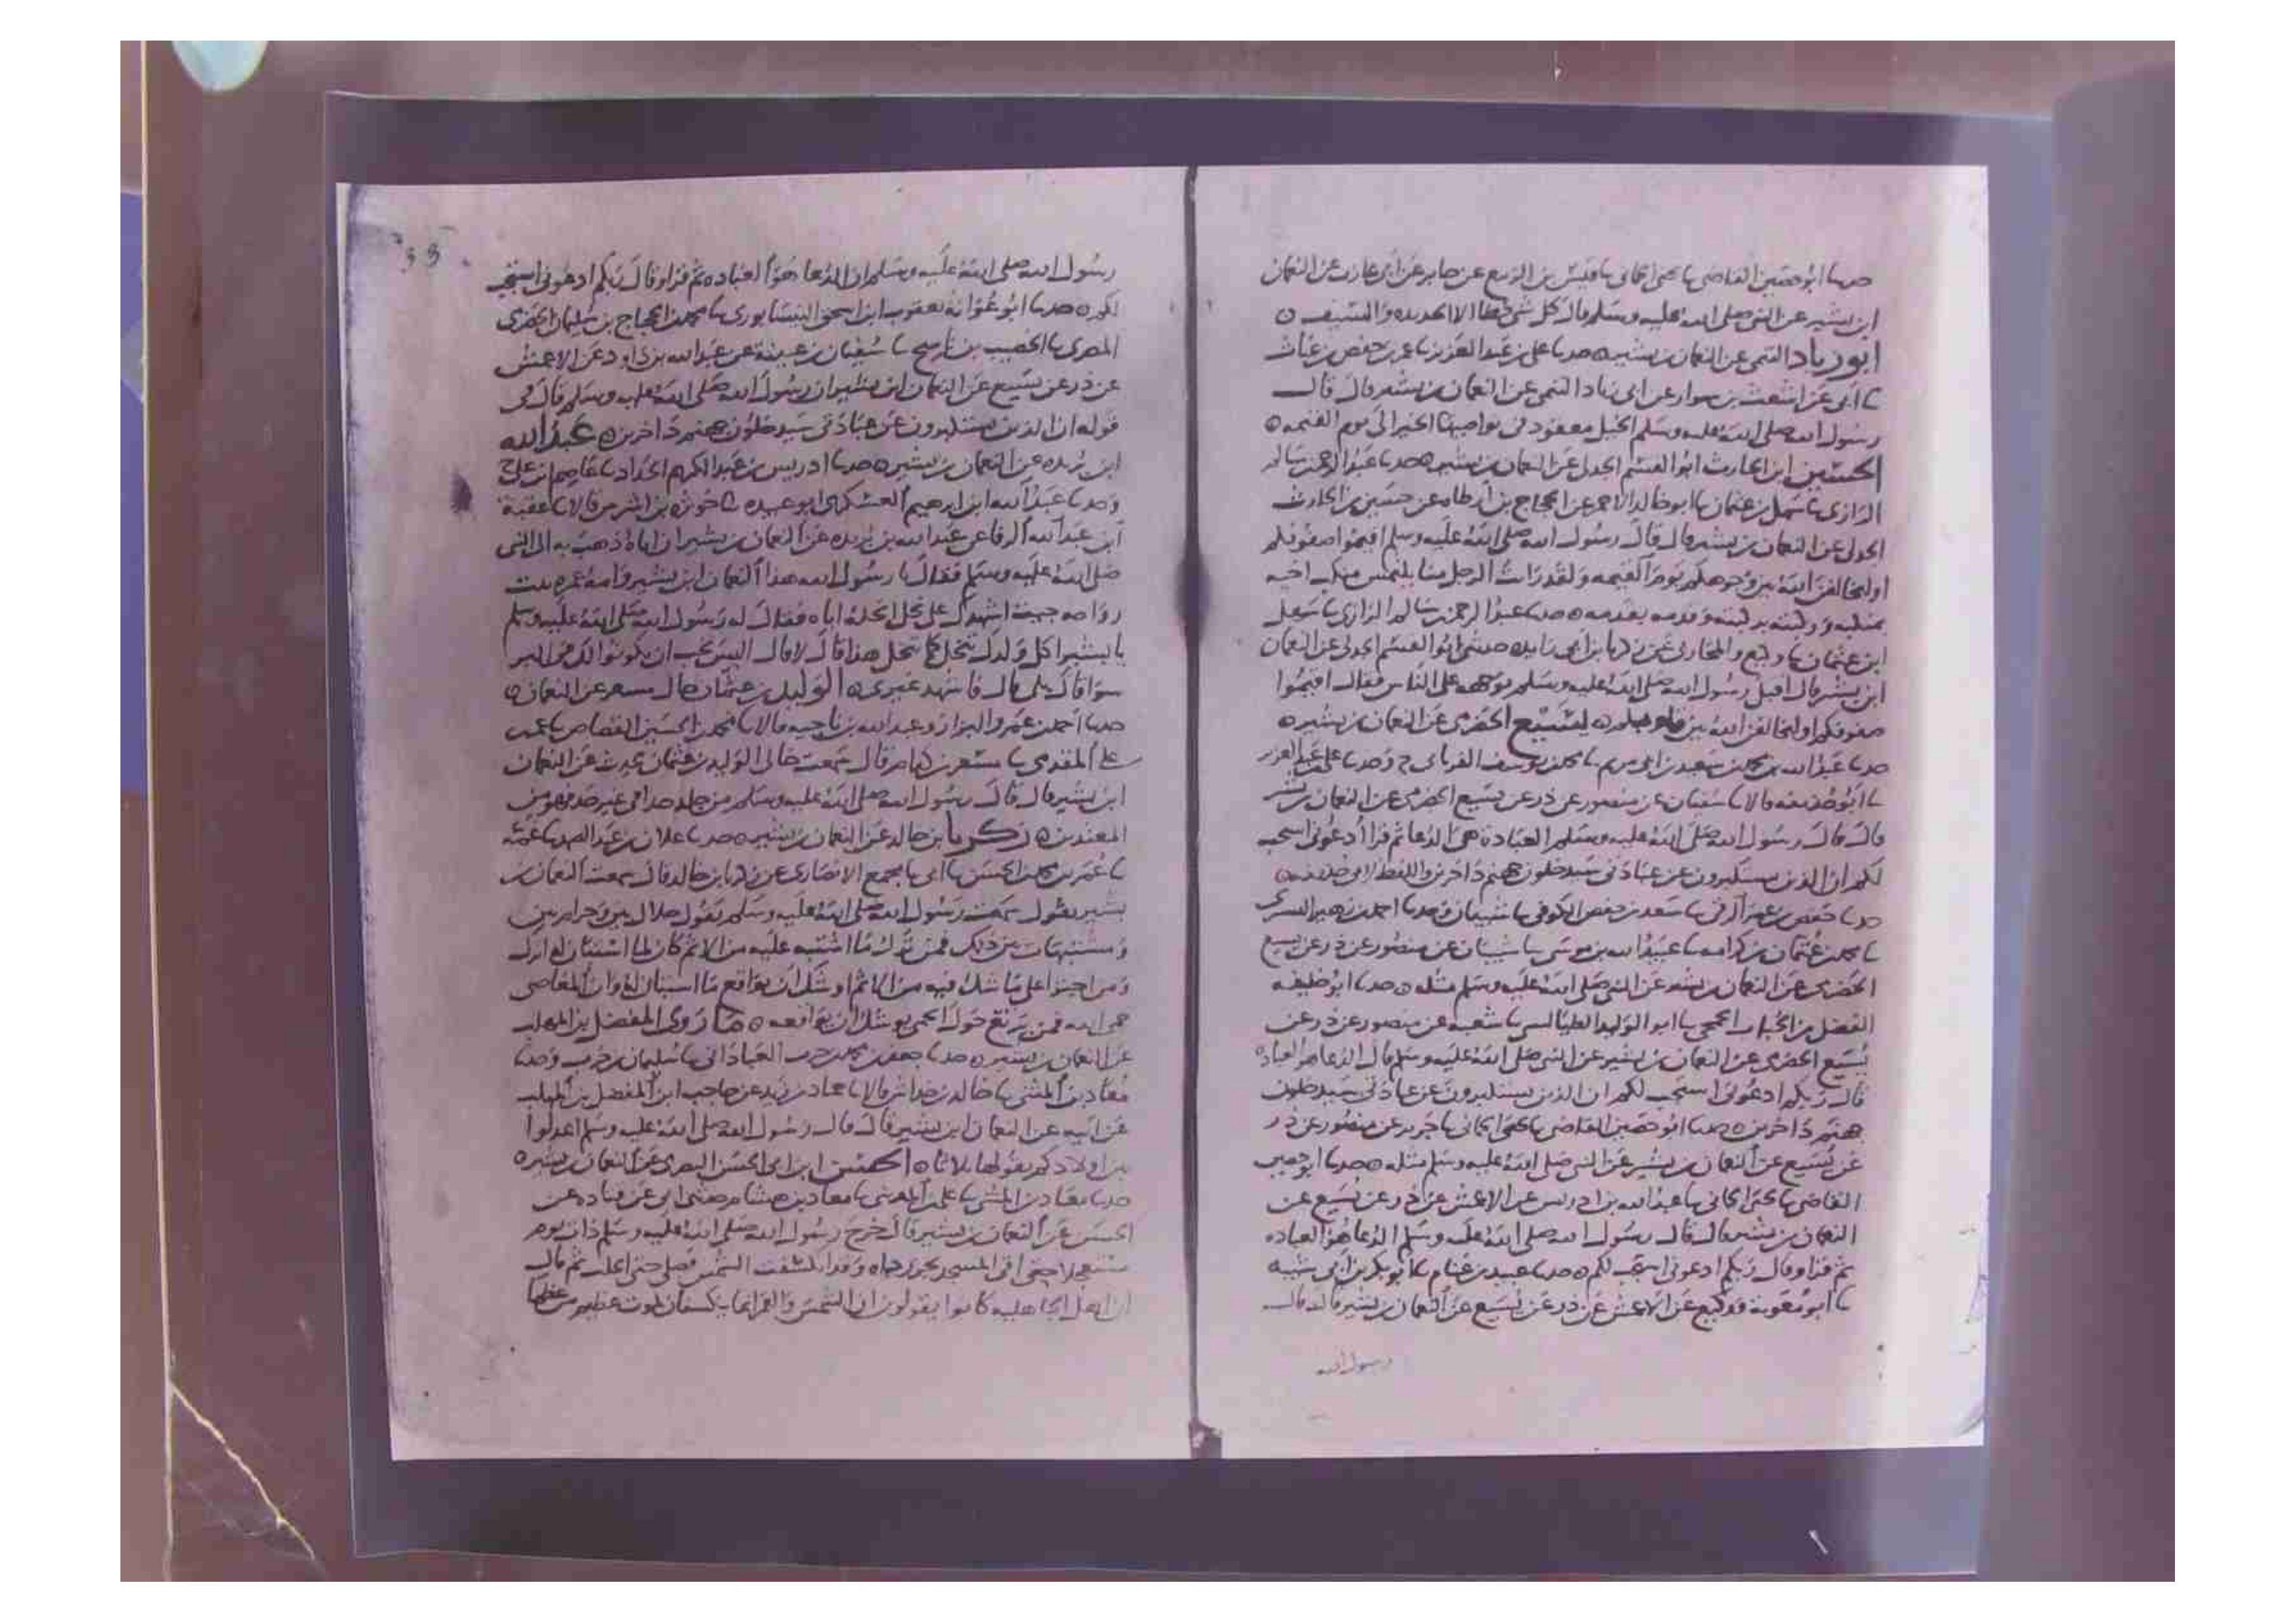 حدثنا ابو حصين القاضي نا يحيى الحماني نا قيس بن الربيع عن جابر عن ابي عازب عن النعمان
ابن بشير عن النبي صلى الله عليه وسلم قال كل شي خطا الا الحديده والسيف ٥
ابو زياد التيمي عن النعمان بن بشير ٥ حدثنا علي بن عبد العزيز نا عمر بن حفص بن غياث
نا ابي عن اشعث بن سوار عن ابي زياد التيمي عن النعمان بن بشير قال قال
رسول الله صلى الله عليه وسلم الخيل معقود في نواصيها الخير الى يوم القيمه ٥
الحسين ابن الحارث ابو القسم الجدلي عن النعمان بن بشير ٥ حدثنا عبد الرحمن بن سالم
الرازي نا سهل بن عثمان نا ابو خالد الاحمر عن الحجاج بن ارطاه عن حسين بن الحارث
الجدلي عن النعمان بن بشير قال قال رسول الله صلى الله عليه وسلم اقيموا صفوفكم
او ليخالفن الله بين وجوهكم يوم القيمه ولقد رات الرجل منا يلتمس منكب اخيه
بمنكبه وركبته بركبته وقدمه بقدمه ٥ حدثنا عبد الرحمن بن سالم الرازي نا سهل
ابن عثمان نا وكيع والمحاربي عن زكريا بن ابي زايده حدثني ابو القسم الجدلي عن النعمان
ابن بشير قال اقبل رسول الله صلى الله عليه وسلم بوجهه على الناس فقال اقيموا
صفوفكم او ليخالفن الله بين قلوبكم ٥ يسيع الحضرمي عن النعمان بن بشير ٥
حدثنا عبد الله بن محمد بن سعيد بن ابي مريم نا محمد بن يوسف الفريابي ح وحدثنا علي بن عبد العزيز
نا ابو حذيفه قالا نا سفيان عن منصور عن ذر عن يسيع الحضرمي عن النعمان بن بشير
قال قال رسول الله صلى الله عليه وسلم العبادة هي الدعا ثم قرا ادعوني استجب
لكم ان الذين يستكبرون عن عبادتي سيدخلون جهنم داخرين واللفظ لابي حذيفه ٥
حدثنا حفص بن عمر الرقي نا سعد بن حفص الكوفي نا شيبان وحدثنا احمد بن زهير التستري
نا محمد بن عثمان بن كرامه نا عبيد الله بن موسى نا شيبان عن منصور عن ذر عن يسيع
الحضرمي عن النعمان بن بشير عن النبي صلى الله عليه وسلم مثله ٥ حدثنا ابو خليفه
الفضل بن الحباب الجمحي نا ابو الوليد الطيالسي نا شعبه عن منصور عن ذر عن
يسيع الحضرمي عن النعمان بن بشير عن النبي صلى الله عليه وسلم قال الدعا هو العباده
قال ربكم ادعوني استجب لكم ان الذين يستكبرون عن عبادتي سيدخلون
جهنم داخرين ٥ حدثنا ابو حصين القاضي نا يحيى الحماني نا جرير عن منصور عن ذر
عن يسيع عن النعمان بن بشير عن النبي صلى الله عليه وسلم مثله ٥ حدثنا ابو حصين
القاضي نا يحيى الحماني نا عبد الله بن ادريس عن الاعمش عن ذر عن يسيع عن
النعمان بن بشير قال قال رسول الله صلى الله عليه وسلم الدعا هو العباده
ثم قرا وقال ربكم ادعوني استجب لكم ٥ حدثنا عبيد بن غنام نا ابو بكر بن ابي شيبه
نا ابو معوية ووكيع عن الاعمش عن ذر عن يسيع عن النعمان بن بشير قال قال
رسول الله
رسول الله صلى الله عليه وسلم ان الدعا هو العباده ثم قرا وقال ربكم ادعوني استجب
لكم ٥ حدثنا ابو عوانه يعقوب ابن اسحق النيسابوري نا محمد بن الحجاج بن سليمان الحضرمي
المصري نا الخصيب بن ناصح نا سفيان بن عيينة عن عبد الله بن داود عن الاعمش
عن ذر عن يسيع عن النعمان ابن بشير ان رسول الله صلى الله عليه وسلم قال في
قوله ان الذين يستكبرون عن عبادتي سيدخلون جهنم داخرين ٥ عبد الله
ابن بريده عن النعمان بن بشير ٥ حدثنا ادريس بن عبد الكريم الحداد نا عاصم بن علي ح
وحدثنا عبد الله ابن ابرهيم العسكري ابو عبيده نا حوثرة بن اشرس قالا نا عقبة
ابن عبد الله الرفاعي عن عبد الله بن بريده عن النعمان بن بشير ان اباه ذهب به الى النبي
صلى الله عليه وسلم فقال يا رسول الله هذا النعمان ابن بشير وامه عمره بنت
رواحه جيت اشهدك على نحل انحله اياه فقال له رسول الله صلى الله عليه وسلم
يا بشير اكل ولدك تنحل كما تنحل هذا قال لا قال اليس تحب ان يكونوا لك في البر
سوا قال بلى قال فاشهد غيري ٥ الوليد بن عثمان خال مسعر عن النعمان ٥
حدثنا احمد بن عمرو البزار وعبد الله بن ناجيه قالا نا محمد بن الحسين القصاص نا عمر بن
علي المقدمي نا مسعر بن كدام قال سمعت خالي الوليد بن عثمان يحدث عن النعمان
ابن بشير قال قال رسول الله صلى الله عليه وسلم من جلد حدا في غير حد فهو من
المعتدين ٥ زكريا بن خالد عن النعمان بن بشير ٥ حدثنا علان بن عبد الصمد
نا عمر بن محمد بن الحسن نا ابي نا مجمع الانصاري عن زكريا بن خالد قال سمعت النعمان بن
بشير يقول سمعت رسول الله صلى الله عليه وسلم يقول حلال بين وحرام بين
ومشتبهات بين ذلك فمن ترك ما اشتبه عليه من الاثم كان لما استبان له اترك
ومن اجترا على ما شك فيه من الاثم اوشك ان يواقع ما استبان له وان المعاصي
حمى الله فمن يرتع حول الحمى يوشك ان يواقعه ٥ ما روى المفضل بن المهلب
عن النعمان بن بشير ٥ حدثنا جعفر بن محمد بن حرب العباداني نا سليمان بن حرب وحدثنا
معاذ بن المثنى نا خالد بن خداش قالا نا حماد بن زيد عن حاجب ابن المفضل بن المهلب
عن ابيه عن النعمان ابن بشير قال قال رسول الله صلى الله عليه وسلم اعدلوا
بين اولادكم يقولها ثلاثا ٥ الحسن ابن ابي الحسن البصري عن النعمان بن بشير ٥
حدثنا معاذ بن المثنى نا علي بن المديني نا معاذ بن هشام حدثني ابي عن قتاده عن
الحسن عن النعمان بن بشير قال خرج رسول الله صلى الله عليه وسلم ذات يوم
مستعجلا حتى اتى المسجد يجر رداه وقد انكسفت الشمس فصلى حتى انجلت ثم قال
ان اهل الجاهليه كانوا يقولون ان الشمس والقمر انما ينكسفان لموت عظيم من